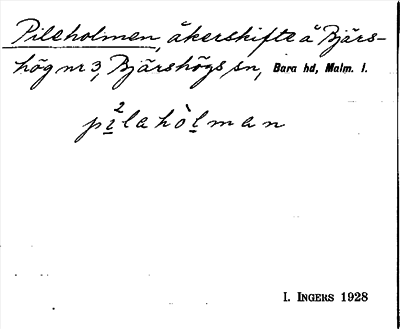 Pileholmen, åkerskifte å Bjärs-
hög nr 3, Bjärshögs sn, Bara hd, Malm. l.
pi²lahòlman
I. INGERS 1928